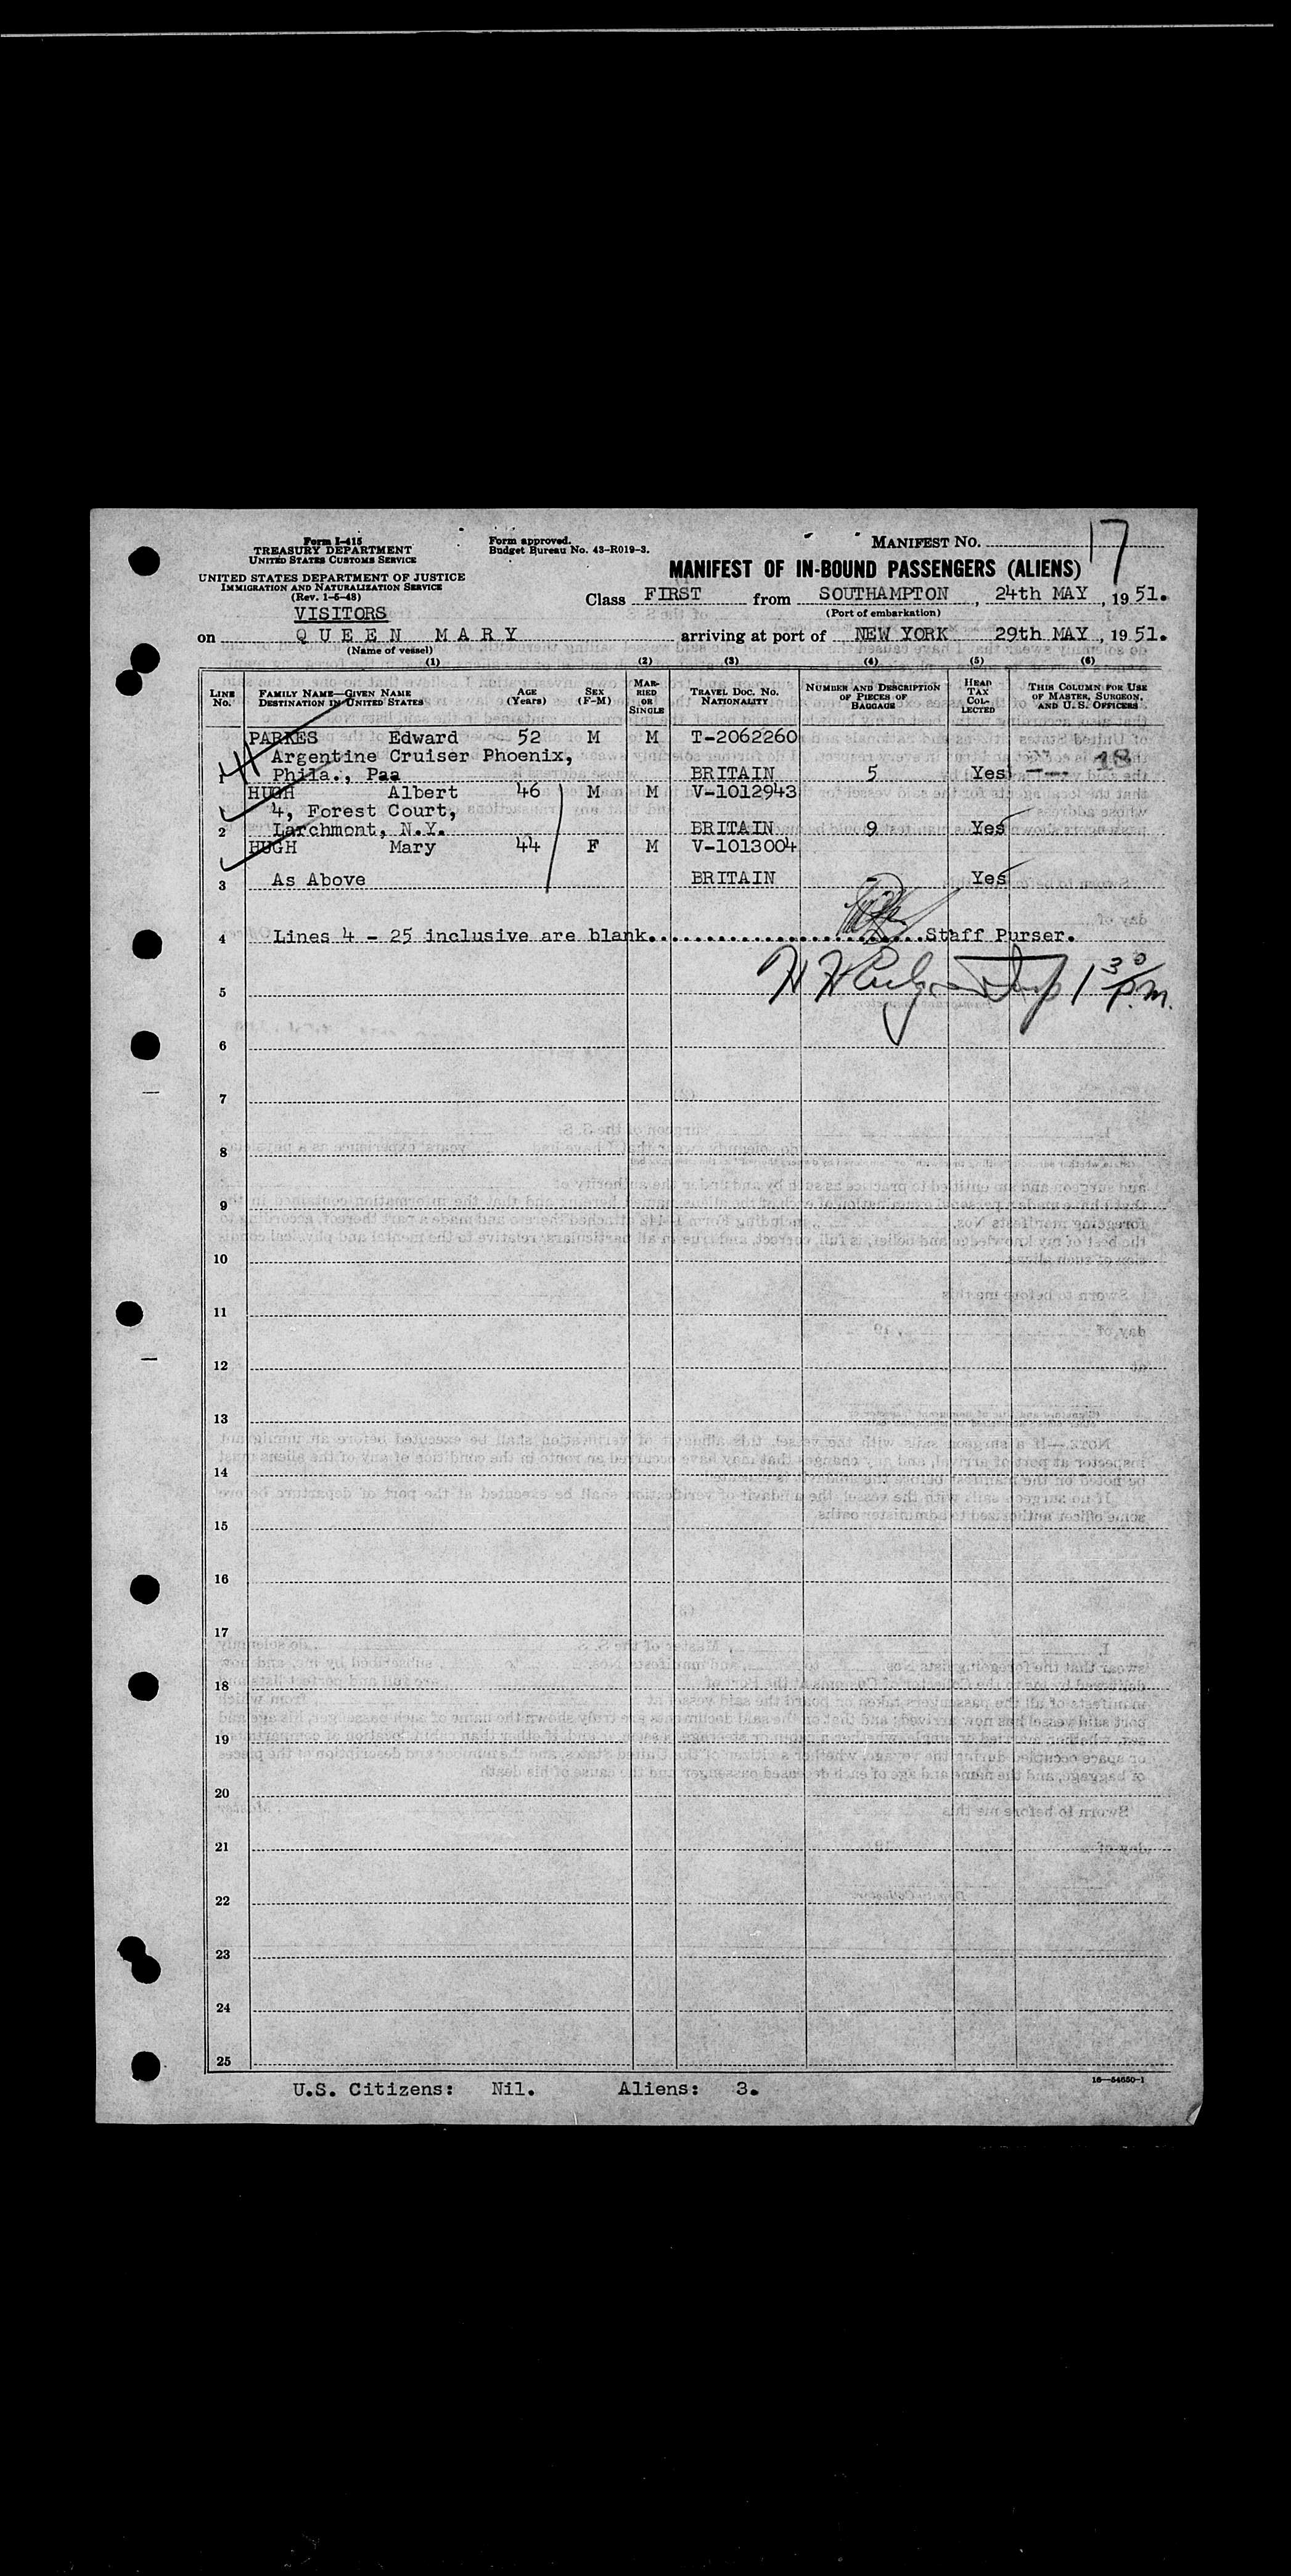 Form I-415
TREASURY DEPARTMENT
UNITED STATES CUSTOMS SERVICE
UNITED STATES DEPARTMENT OF JUSTICE
IMMIGRATION AND NATURALIZATION SERVICE
(Rev. 1-6-48)
VISITORS
Form approved.
Budget Bureau No. 43-R019-3.
MANIFEST NO. 17
MANIFEST OF IN-BOUND PASSENGERS (ALIENS)
Class FIRST from SOUTHAMPTON, 24th MAY, 1951.
(Port of embarkation)
on QUEEN MARY arriving at port of NEW YORK 29th MAY, 1951.
(Name of vessel)
(1) (2) (3) (4) (5) (6)
LINE NO. FAMILY NAME—GIVEN NAME DESTINATION IN UNITED STATES AGE (Years) SEX (F-M) MARRIED OR SINGLE TRAVEL DOC. NO. NATIONALITY NUMBER AND DESCRIPTION OF PIECES OF BAGGAGE HEAD TAX COLLECTED THIS COLUMN FOR USE OF MASTER, SURGEON, AND U. S. OFFICERS
PARKES Edward 52 M M T-2062260
Argentine Cruiser Phoenix, 18
1 Phila., Paa BRITAIN 5 Yes
HUGH Albert 46 M M V-1012943
4, Forest Court,
2 Larchmont, N.Y. BRITAIN 9 Yes
HUGH Mary 44 F M V-1013004
3 As Above BRITAIN - Yes
4 Lines 4 - 25 inclusive are blank...........................Staff Purser.
5 1 30 P.M.
6
7
8
9
10
11
12
13
14
15
16
17
18
19
20
21
22
23
24
25
U.S. Citizens: Nil. Aliens: 3.
16—54650-1